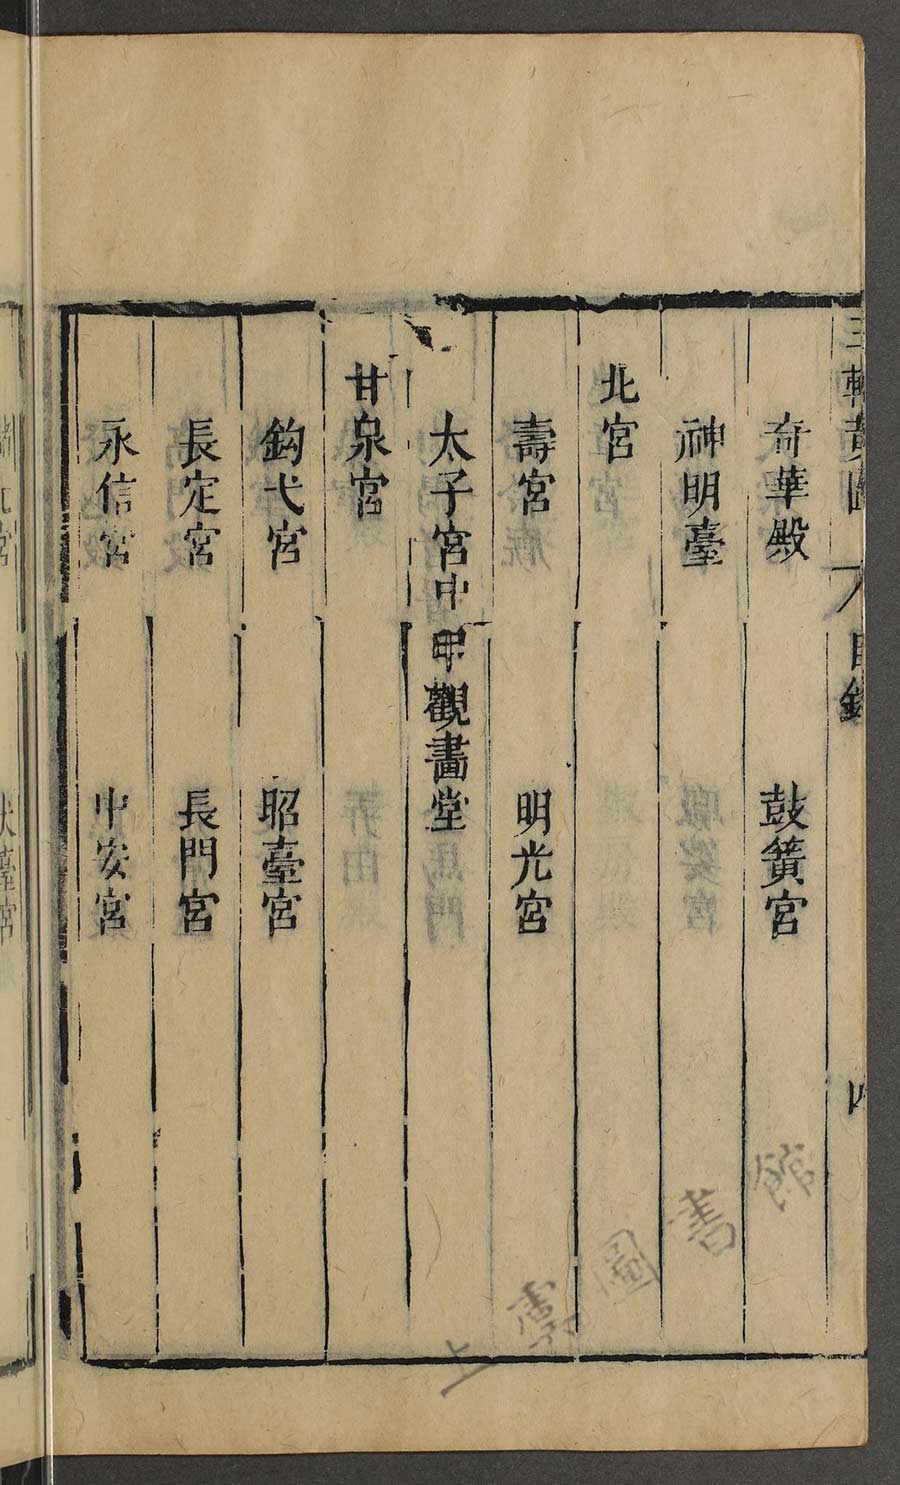 三輔黃圖 目錄 四
奇華殿 鼓簧宮
神明臺
北宮
壽宮 明光宮
太子宮中甲觀畫堂
甘泉宮
鈎弋宮 昭臺宮
長定宮 長門宮
永信宮 中安宮
上海圖書館